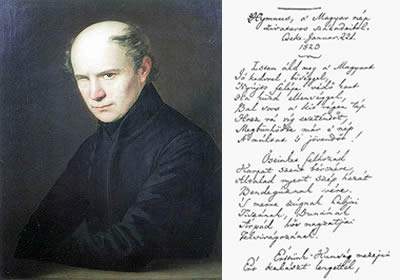 Hymnus, a' Magyar nép
zivataros századaiból.
Cseke, Januar. 22d.
1823
Isten áldd meg a' Magyart
Jó kedvvel, bőséggel,
Nyújts feléje védő kart
Ha küzd ellenséggel;
Bal sors a' kit régen tép
Hozz rá víg esztendőt,
Megbünhödte már e' nép
A' multat 's jövendőt!
Őseinket felhozád
Kárpát szent bérczére,
Általad nyert szép hazát
Bendegúznak vére.
'S merre zúgnak habjai
Tiszának, Dunának,
Árpád hős magzatjai
Felvirágozának.
Értünk Kunság mezején
Ért kalászt lengettél,